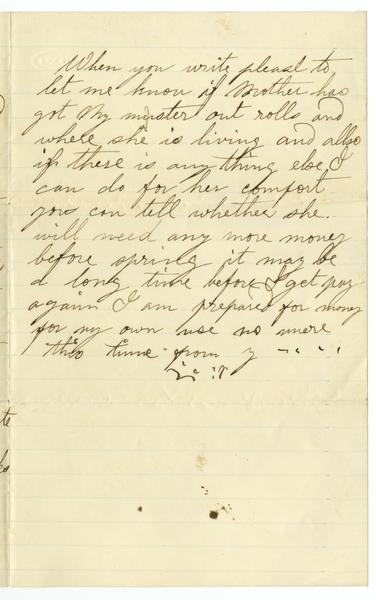 When you write please to
let me know if Mother has
got My muster out rolls and
where she is living and allso
if there is any thing else I
can do for her comfort
you can tell whether she
will need any more money
before spring it may be
a long time before I get pay
again I am prepared for money
for my own use no more
this time from y